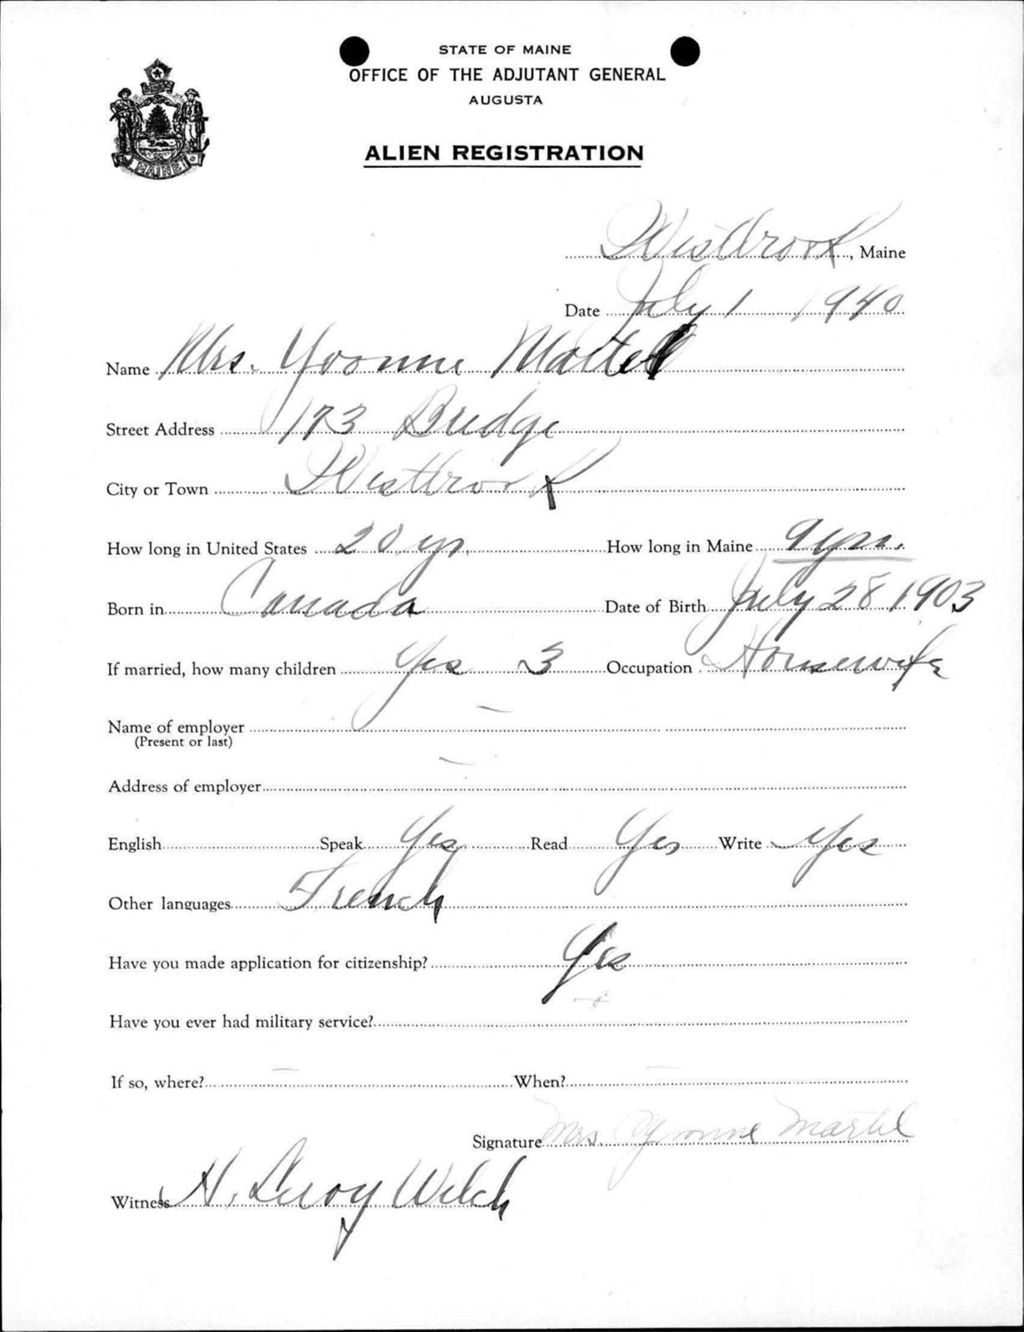 STATE OF MAINE
OFFICE OF THE ADJUTANT GENERAL
AUGUSTA
ALIEN REGISTRATION
MAINE
Westbrook, Maine
Date July 1 1940
Name Mrs. Yvonne Martel
Street Address 173 Bridge
City or Town Westbrook
How long in United States 20 yr. How long in Maine 9 yrs.
Born in Canada Date of Birth July 28 1903
If married, how many children Yes 3 Occupation Housewife
Name of employer —
(Present or last)
Address of employer —
English Speak Yes Read Yes Write Yes
Other languages French
Have you made application for citizenship? Yes
Have you ever had military service?
If so, where? — When? —
Signature Mrs. Yvonne Martel
Witness H. Leroy Welch